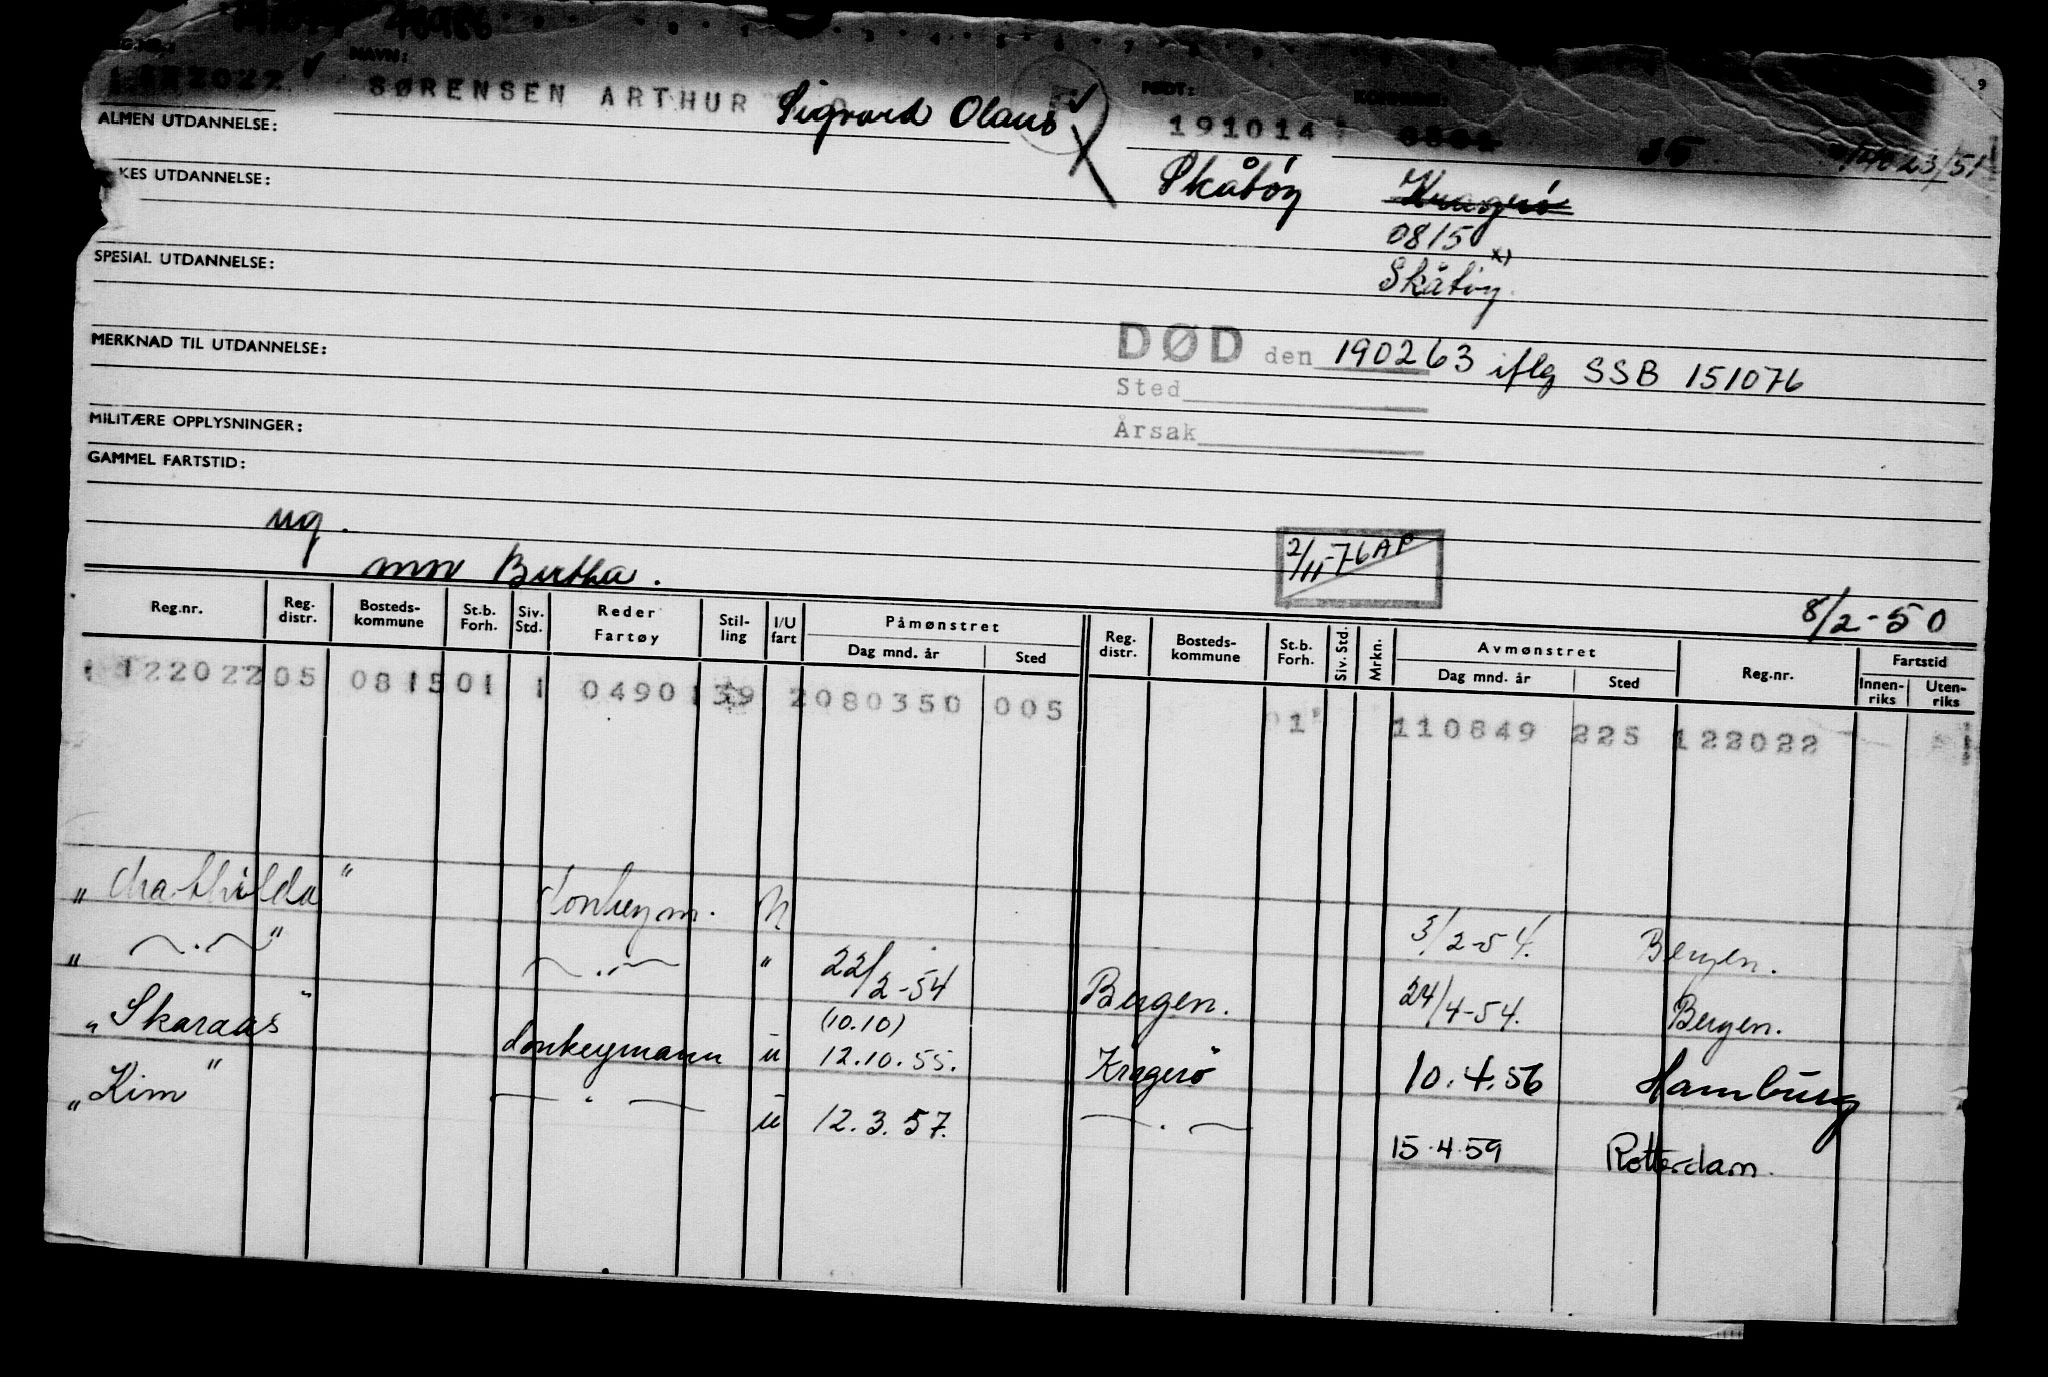 NAVN:
FØDT:
122022 SØRENSEN ARTHUR Sigvard Olaus 191014 9
ALMEN UTDANNELSE: 23/51
Skåtöy Kragerö
UTDANNELSE:
0815 x)
Skåtöy.
SPESIAL UTDANNELSE:
MERKNAD TIL UTDANNELSE:
DØD den 190263 iflg SSB 151076
Sted
MILITÆRE OPPLYSNINGER:
Årsak
GAMMEL FARTSTID:
ug.
mor Bertha.
2/11-76 AP
8/2-50
Reg.nr. Reg. distr. Bosteds-kommune St.b. Forh. Siv. Std. Reder Fartøy Stil-ling I/U fart Påmønstret Dag mnd. år Sted Reg. distr. Bosteds-kommune St.b. Forh. Siv. Std. Mrkn. Avmønstret Dag mnd. år Sted Reg.nr. Fartstid Innen-riks Uten-riks
1 122022 05 0815 01 1 0490 139 2 080350 005 1 110849 225 122022
"Mathilda" donkeym. U 3/2-54. Bergen.
" — . — " — „ — " 22/2-54 Bergen. 24/4-54. Bergen.
(10.10)
"Skaraas" donkeymann u 12.10.55. Kragerö 10.4.56 Hamburg
"Kim" — . — u 12.3.57. — . — 15.4.59 Rotterdam.